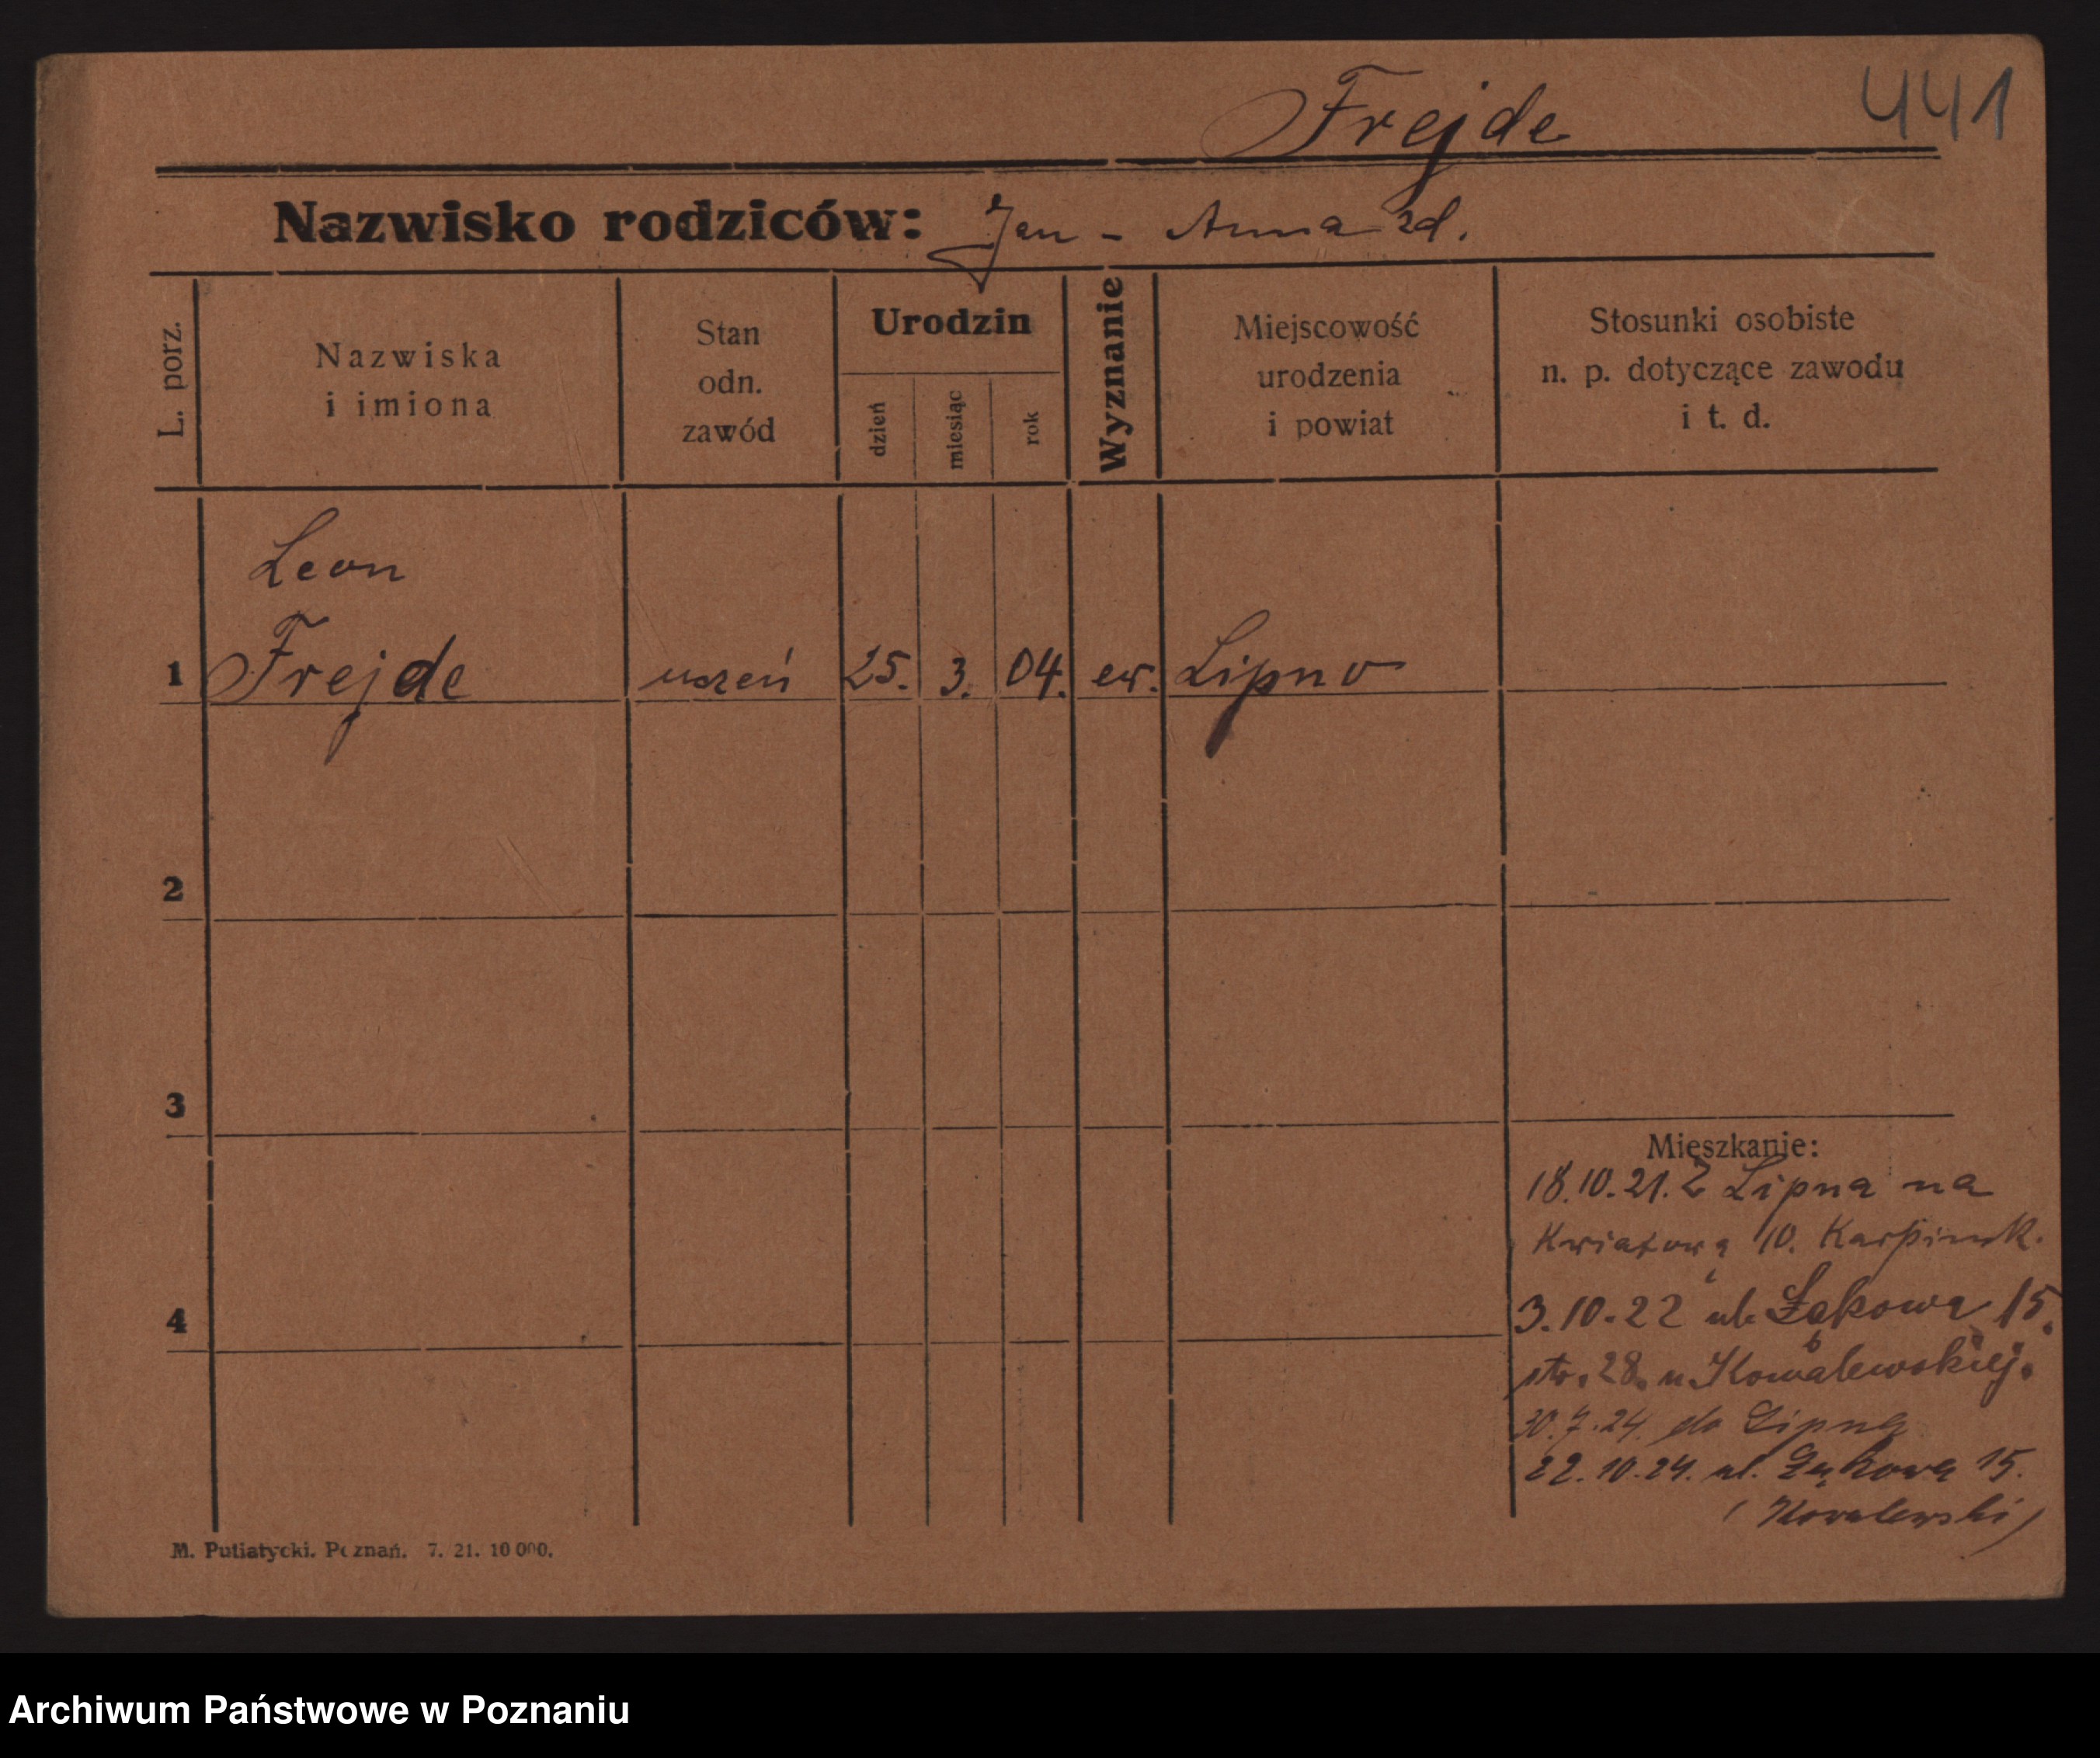 Frejde
441
Nazwisko rodziców: Jan - Anna zd.
L. porz.
Nazwiska
i imiona
Stan
odn.
zawód
Urodzin
dzień
miesiąc
rok
Wyznanie
Miejscowość
urodzenia
i powiat
Stosunki osobiste
n. p. dotyczące zawodu
i t. d.
Leon
1 Frejde uczeń 25. 3. 04. ew. Lipno
2
3
Mieszkanie:
18.10.21. Z Lipna na
Kwiatową 10.
4
3.10.22 ul. Łąkowa 15.
ptr. 28. u Kowalewskiej.
30.7.24. do Lipna
22.10.24. ul. Łąkowa 15.
(Kowalewski)
M. Putiatycki. Poznań. 7. 21. 10 000.
Archiwum Państwowe w Poznaniu